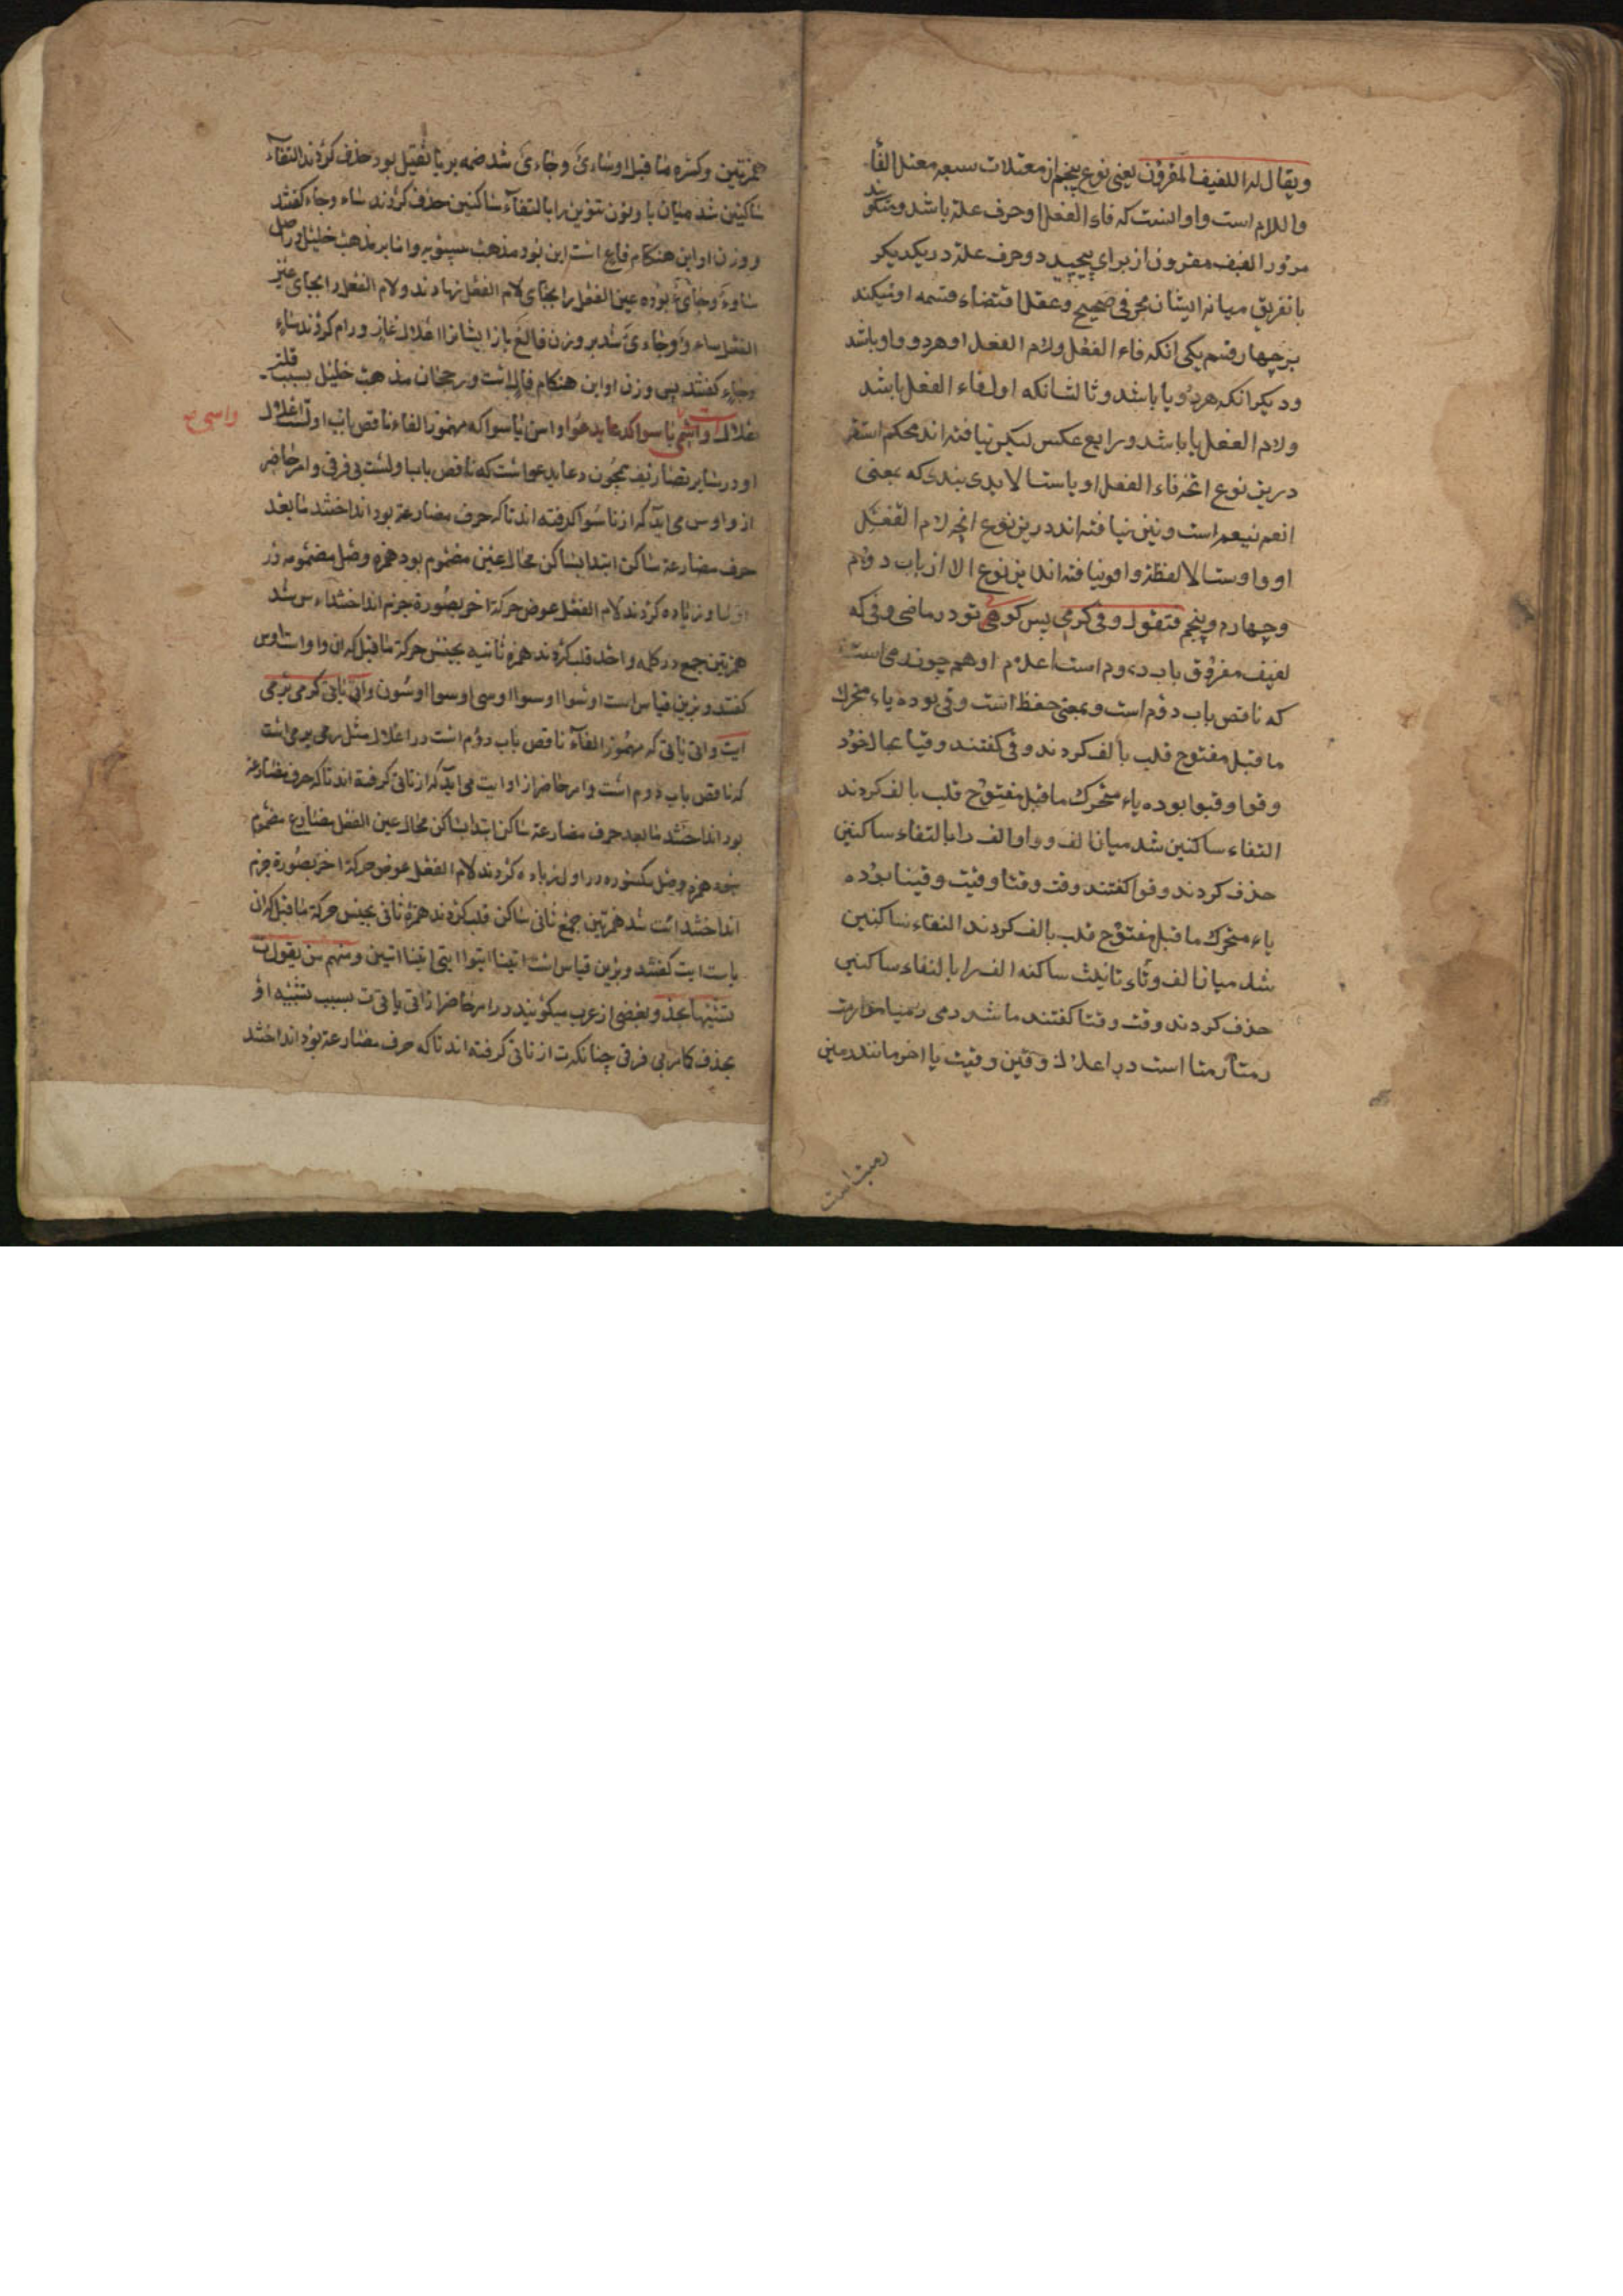 ویقال له اللفیف المفروق یعنی نوع پنجم از معتلات سبعه معتل الفاء
واللام است و او انست که فاء الفعل او حرف علة باشد و میگویند
مر ورا لفیف مفروق از برای پیچید دو حرف علة در یکدیکر
با تفریق میانه ایشان بحرفی صحیح و عقل اقتضاء قسمه او میکند
بر چهار قسم یکی انکه فاء الفعل ولام الفعل او هردو واو باشد
ودیکر انکه هردو یا باشد وثالث انکه اول فاء الفعل یا باشد
ولام الفعل یا باشد ورابع عکس لیکن نیافته اند محکم استقراء
درین نوع انچه فاء الفعل او یاست الا یدی یندی که بمعنی
انعم ینعم است ونیز نیافته اند درین نوع انچه لام الفعل
او واوست الا لفظة واو ونیافته اند این نوع الا از باب دوم
وچهارم وپنجم فتقول وقی کرمی پس کوئی تو در ماضی وقی که
لفیف مفروق باب دوم است اعلام او همچون رمی است
که ناقص باب دوم است وبمعنی حفظ است وقی بوده یاء متحرک
ما قبل مفتوح قلب بالف کردند وقی کفتند وقیا بحال خود
وقوا وقیوا بوده یاء متحرک ما قبل مفتوح قلب بالف کردند
التقاء ساکنین شد میان الف و واو الف را بالتقاء ساکنین
حذف کردند وقوا کفتند وقت وقتا وقیت وقیتا بوده
یاء متحرک ما قبل مفتوح قلب بالف کردند التقاء ساکنین
شد میان الف وتاء تانیث ساکنه الف را بالتقاء ساکنین
حذف کردند وقت وقتا کفتند مانند رمی رمیا رموا رمت
رمتا رمتا است در اعلال وقین وقیت یا اخر مانند رمین
رمیت است
همزتین وکسره ما قبل او شاءی وجاءی شد ضمه بر یا ثقیل بود حذف کردند التقاء
ساکنین شد میان یا ونون تنوین یا را بالتقاء ساکنین حذف کردند شاء وجاء کفتند
ووزن او این هنکام فاع است این بود مذهب سیبویه واما بر مذهب خلیل در اصل
شاوء وجایء بوده عین الفعل را بجای لام الفعل نهادند ولام الفعل را بجای عین
الفعل شاءو وجاءی شد بر وزن فالع باز ایشانرا اعلال غاز ورام کردند شاء
وجاء کفتند پس وزن او این هنکام فال است ورجحان مذهب خلیل بسبب قلة
اعلال است واسی یاسوا کدعا یدعوا واسی یاسوا که مهموز الفاء ناقص باب اول است اعلال
واسی
او در سایر تصاریف همچون دعا یدعو است که ناقص باب اول است بی فرق وامر حاضر
از و اوس می اید که از تاسوا کرفته اند تا که حرف مضارعة بود انداختند ما بعد
حرف مضارعة ساکن ابتدا بساکن محال عین مضموم بود همزه وصل مضمومه در
اول او زیاده کردند لام الفعل عوض حرکة اخر بصورة جزم انداختند اءس شد
همزتین جمع در کلمه واحد قلب کردند همزه ثانیه بجنس حرکة ما قبل که ان واو است اوس
کفتند وبرین قیاس است اوسوا اوسوا اوسی اوسوا اوسون واتی یاتی کرمی یرمی
ایت واتی یاتی که مهموز الفاء ناقص باب دوم است در اعلال مثل رمی یرمی است
که ناقص باب دوم است وامر حاضر از او ایت می اید که از تاتی کرفته اند تا که حرف مضارعة
بود انداختند ما بعد حرف مضارعة ساکن ابتدا بساکن محال عین الفعل مضارع مضموم
نبود همزه وصل مکسوره در اول زیاده کردند لام الفعل عوض حرکة اخر بصورة جزم
انداختند ائت شد همزتین جمع ثانی ساکن قلب کردند همزه ثانی بجنس حرکة ما قبل که ان
یاست ایت کفتند وبرین قیاس است ایتیا ایتوا ایتی ایتیا ایتین ومنهم من یقول ت
تشبیها بخذ وبعضی از عرب میکویند در امر حاضر از اتی یاتی ت بسبب تشبیه او
بخذ وکل ومر بی فرق چنانکه ت از تاتی کرفته اند تا که حرف مضارعة بود انداختند